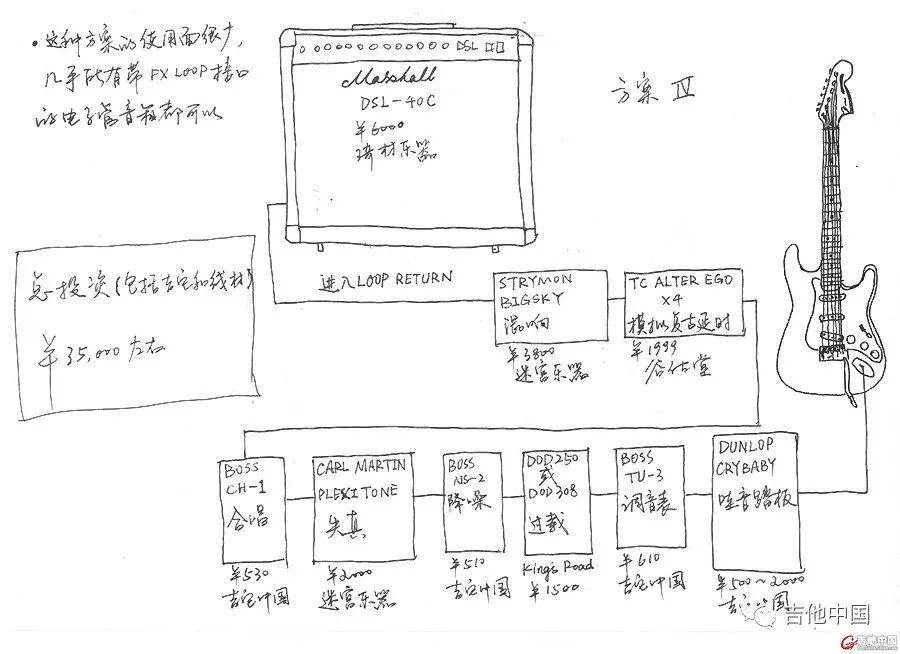 •这种方案的使用面很广,
几乎所有带 FX LOOP 接口
的电子管音箱都可以
DSL
Marshall
DSL-40C
¥6000
琦材乐器
方案 IV
总投资(包括吉它和线材)
¥35,000左右
进入LOOP RETURN
STRYMON
BIGSKY
混响
¥3800
迷宫乐器
TC ALTER EGO
X4
模拟复古延时
¥1999
谷仕堂
BOSS
CH-1
合唱
¥530
吉它中国
CARL MARTIN
PLEXITONE
失真
¥2000
迷宫乐器
BOSS
NS-2
降噪
¥510
吉它中国
DOD250
或
DOD308
过载
King's Road
¥1500
BOSS
TU-3
调音表
¥610
吉它中国
DUNLOP
CRYBABY
哇音踏板
¥500~2000
吉它中国
吉他中国
吉他中国